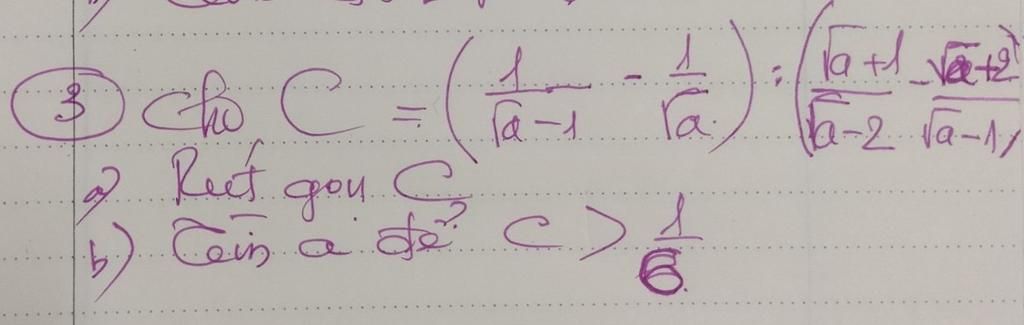 ③ Cho C = (1/(√a - 1) - 1/√a) : ((√a + 1)/(√a - 2) - (√a + 2)/(√a - 1))
a) Rút gọn C
b) Tìm a để C > 1/6